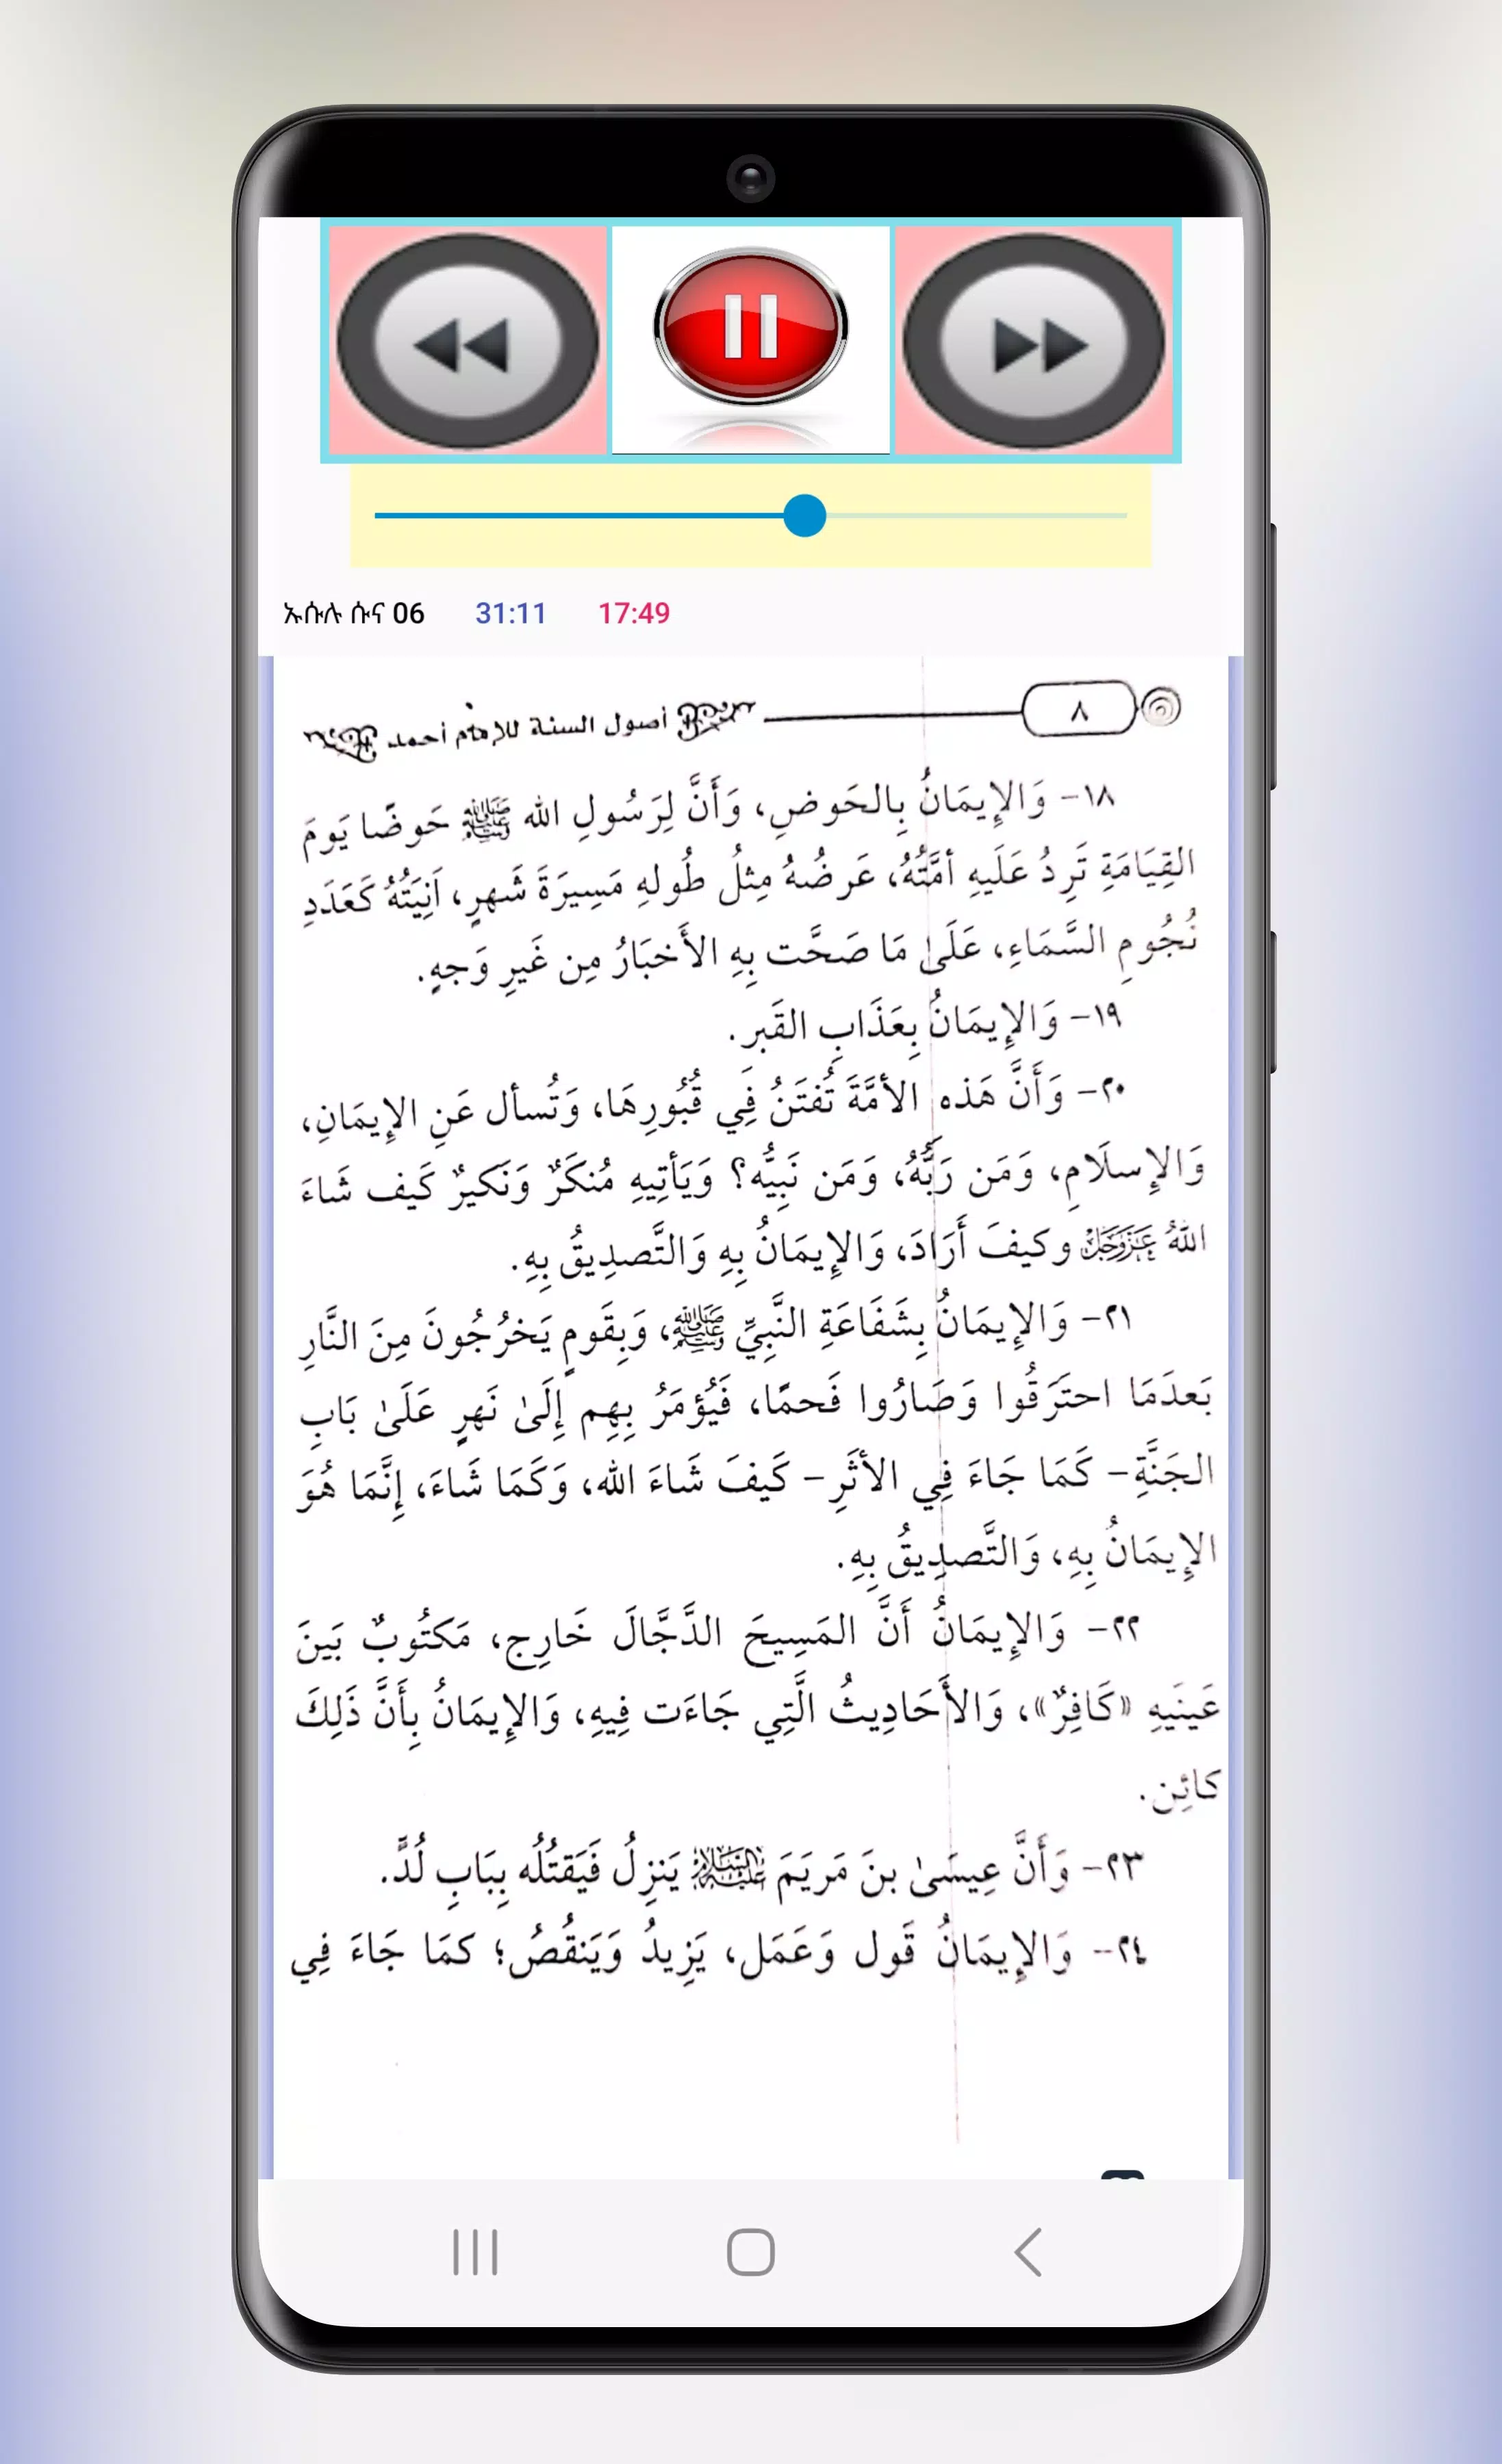 ኡሱሉ ሱና 06 31:11 17:49
٨ أصول السنة للإمام أحمد
١٨- وَالإِيمَانُ بِالحَوضِ، وَأَنَّ لِرَسُولِ الله ﷺ حَوضًا يَومَ
القِيَامَةِ تَرِدُ عَلَيهِ أمَّتُهُ، عَرضُهُ مِثلُ طُولهِ مَسِيرَةَ شَهرٍ، آنِيَتُهُ كَعَدَدِ
نُجُومِ السَّمَاءِ، عَلَىٰ مَا صَحَّت بِهِ الأَخبَارُ مِن غَيرِ وَجهٍ.
١٩- وَالإِيمَانُ بِعَذَابِ القَبرِ.
٢٠- وَأَنَّ هَذه الأمَّةَ تُفتَنُ فِي قُبُورِهَا، وَتُسأل عَنِ الإِيمَانِ،
وَالإِسلَامِ، وَمَن رَبُّهُ، وَمَن نَبِيُّه؟ وَيَأتِيهِ مُنكَرٌ وَنَكيرٌ كَيف شَاءَ
اللهُ عَزَّوَجَلَّ وكيفَ أَرَادَ، وَالإِيمَانُ بِهِ وَالتَّصدِيقُ بِهِ.
٢١- وَالإِيمَانُ بِشَفَاعَةِ النَّبِيِّ ﷺ، وَبِقَومٍ يَخرُجُونَ مِنَ النَّارِ
بَعدَمَا احتَرَقُوا وَصَارُوا فَحمًا، فَيُؤمَرُ بِهِم إِلَىٰ نَهرٍ عَلَىٰ بَابِ
الجَنَّةِ- كَمَا جَاءَ فِي الأثَرِ- كَيفَ شَاءَ الله، وَكَمَا شَاءَ، إِنَّمَا هُوَ
الإِيمَانُ بِهِ، وَالتَّصدِيقُ بِهِ.
٢٢- وَالإِيمَانُ أَنَّ المَسِيحَ الدَّجَّالَ خَارِج، مَكتُوبٌ بَينَ
عَينَيهِ «كَافِرٌ»، وَالأَحَادِيثُ الَّتِي جَاءَت فِيهِ، وَالإِيمَانُ بِأَنَّ ذَلِكَ
كائِن.
٢٣- وَأَنَّ عِيسَىٰ بنَ مَريَمَ عَلَيْهِ السَّلَامُ يَنزِلُ فَيَقتُلُه بِبَابِ لُدٍّ.
٢٤- وَالإِيمَانُ قَول وَعَمَل، يَزِيدُ وَيَنقُصُ؛ كمَا جَاءَ فِي